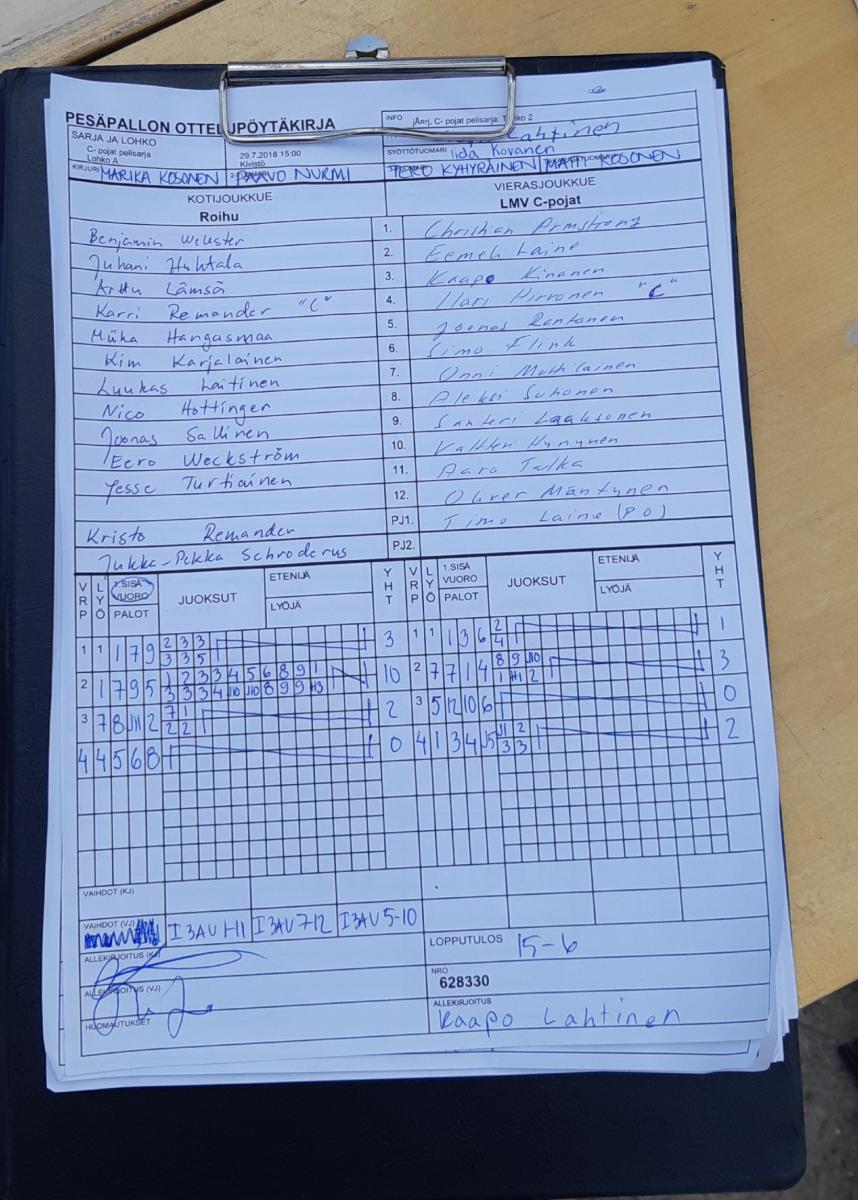 PESÄPALLON OTTELUPÖYTÄKIRJA
INFO jÄnrj, C- pojat pelisarja: T ko 2
SARJA JA LOHKO
C- pojat pelisarja
Lohko A
29.7.2018 15:00
Kivistö
Lahtinen
SYÖTTÖTUOMARI Iida Kovanen
KIRJURI MARIKA KOSONEN PAAVO NURMI TERO KYHYRÄINEN MATTI KOSONEN
KOTIJOUKKUE VIERASJOUKKUE
Roihu LMV C-pojat
Benjamin Webster 1. Christian Armstrong
Juhani Huhtala 2. Eemeli Laine
Arttu Lämsä 3. Kaapo Kinanen
Karri Remander "C" 4. Ilari Hirvonen "C"
Miika Hangasmaa 5. Joonas Rantanen
Kim Karjalainen 6. Simo Flink
Luukas Laitinen 7. Onni
Nico Hottinger 8. Aleksi Suhonen
Joonas Sallinen 9. Santeri Laaksonen
Eero Weckström 10. Valtteri Hynynen
Jesse Turtiainen 11. Aaro Talka
12. Oliver Mäntynen
Kristo Remander PJ1. Timo Laine (PO)
Jukka-Pekka Schroderus PJ2.
VRP LYÖ 1.SISÄ VUORO PALOT JUOKSUT ETENIJÄ LYÖJÄ YHT VRP LYÖ 1.SISÄ VUORO PALOT JUOKSUT ETENIJÄ LYÖJÄ YHT
1 1 1 7 9 2 3 3 3 1 1 1 3 6 2 1
3 3 5 4
2 1 7 9 5 1 2 3 3 4 5 6 8 9 1 10 2 7 7 1 4 8 9 J10 3
3 3 3 4 J10 J10 8 9 9 H3 1 H1 2
3 7 8 J11 2 7 1 2 3 5 12 10 6 0
2 2
4 4 5 6 8 0 4 1 3 4 J5 J1 2 2
3 3
VAIHDOT (KJ)
VAIHDOT (VJ) I 3AV 1-11 I 3AV 7-12 I 3AV 5-10
ALLEKIRJOITUS (KJ) LOPPUTULOS 15-6
ALLEKIRJOITUS (VJ) NRO
628330
HUOMAUTUKSET ALLEKIRJOITUS
Kaapo Lahtinen